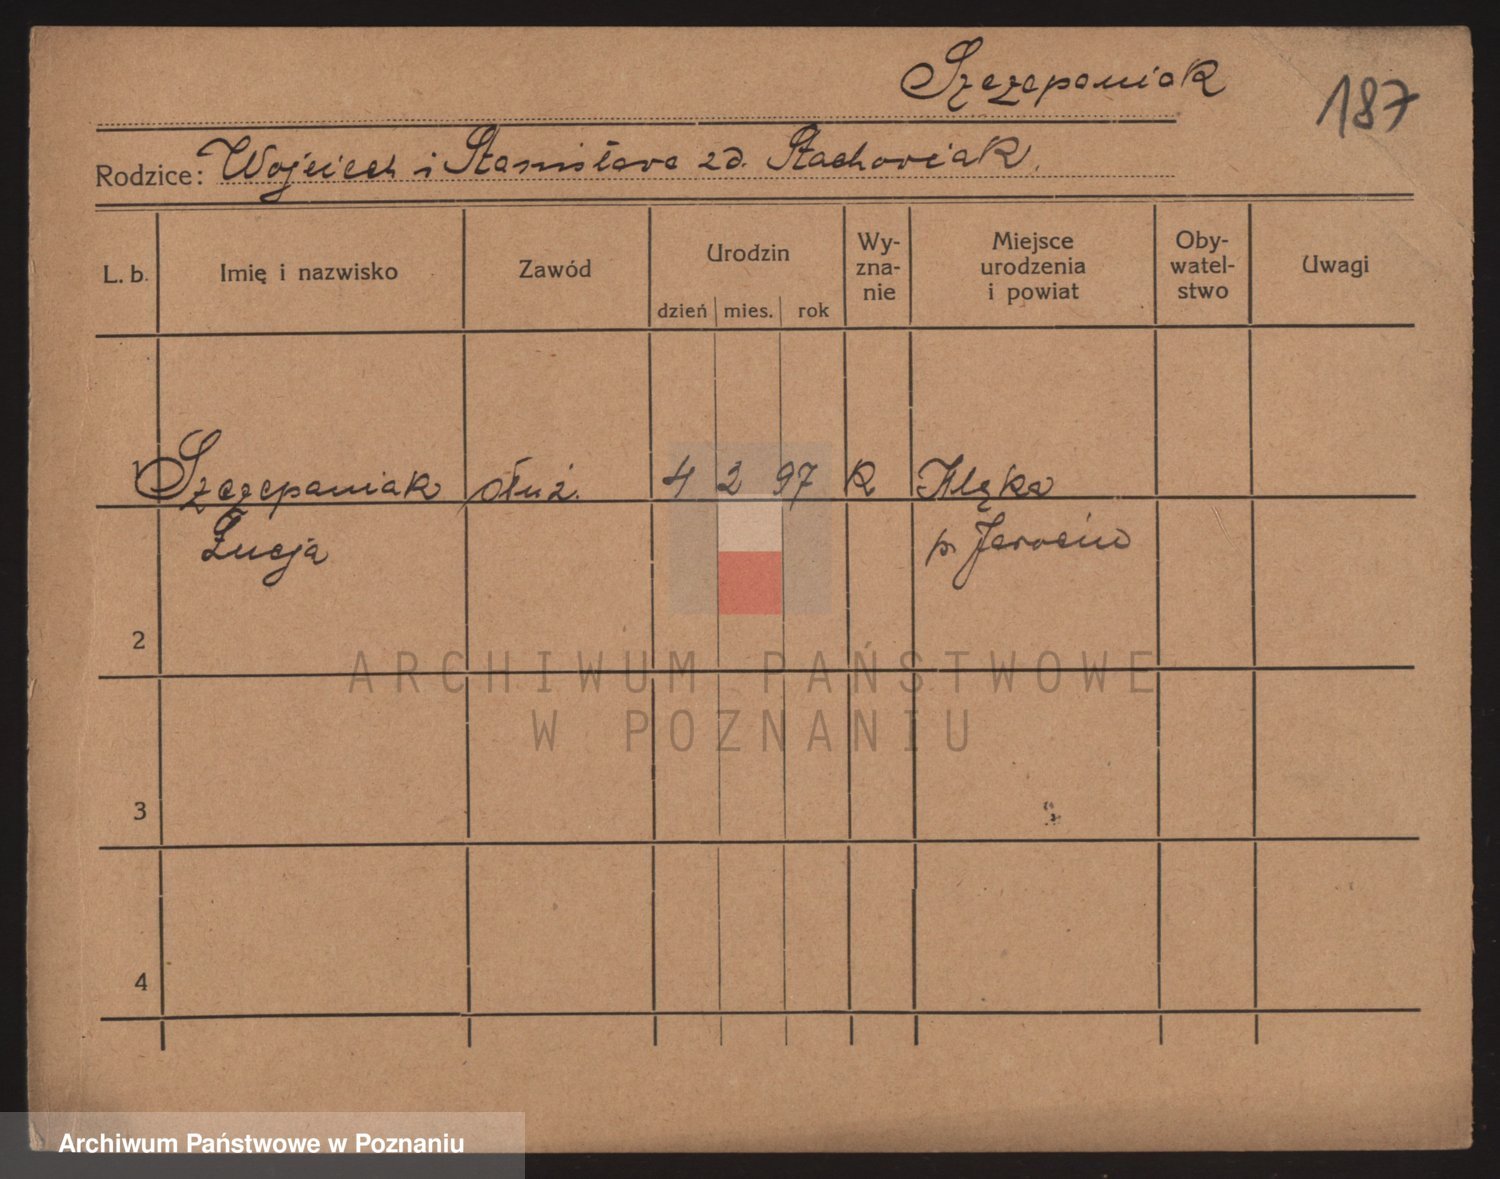 Szczepaniak
187
Rodzice: Wojciech i Stanisława zd. Stachowiak.
L. b. Imię i nazwisko Zawód Urodzin dzień mies. rok Wy-zna-nie Miejsce urodzenia i powiat Oby-watel-stwo Uwagi
1 Szczepaniak służ. 4 2 97 R Klęka
Łucja p. Jarocin
2
ARCHIWUM PAŃSTWOWE
W POZNANIU
3
4
Archiwum Państwowe w Poznaniu